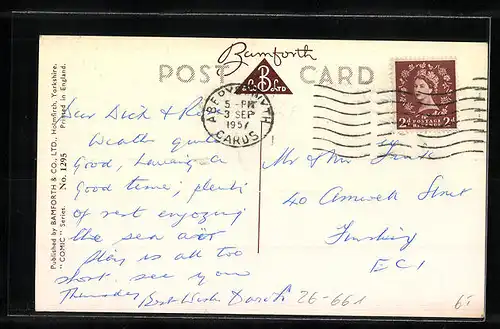 Bamforth
POST CARD
B
& Co LTD
ABERYSTWYTH
5 - PM
3 SEP
1957
CARDS
2d POSTAGE 2d
Published by BAMFORTH & CO., LTD., Holmfirth, Yorkshire.
"COMIC" Series. No. 1295 Printed in England.
Dear Dick &
Weather quite
Good, Having a
Good time; plenty
of rest enjoying
the sea air
Play is all too
short. see you
Thursday Best Wish
Mr & Mrs
40 Amwell Street
Finsbury
EC1
26-661